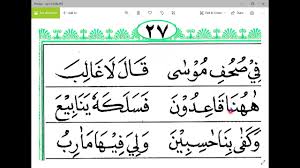 ٢٧
فِيْ صُحُفِ مُوْسٰى قَالَ لَا غَالِبَ
هٰهُنَا قَاعِدُوْنَ فَسَلَكَهٗ يَنَابِيْعَ
وَكَفٰى بِنَا حٰسِبِيْنَ وَلِيَ فِيْهَا مَاٰرِبُ